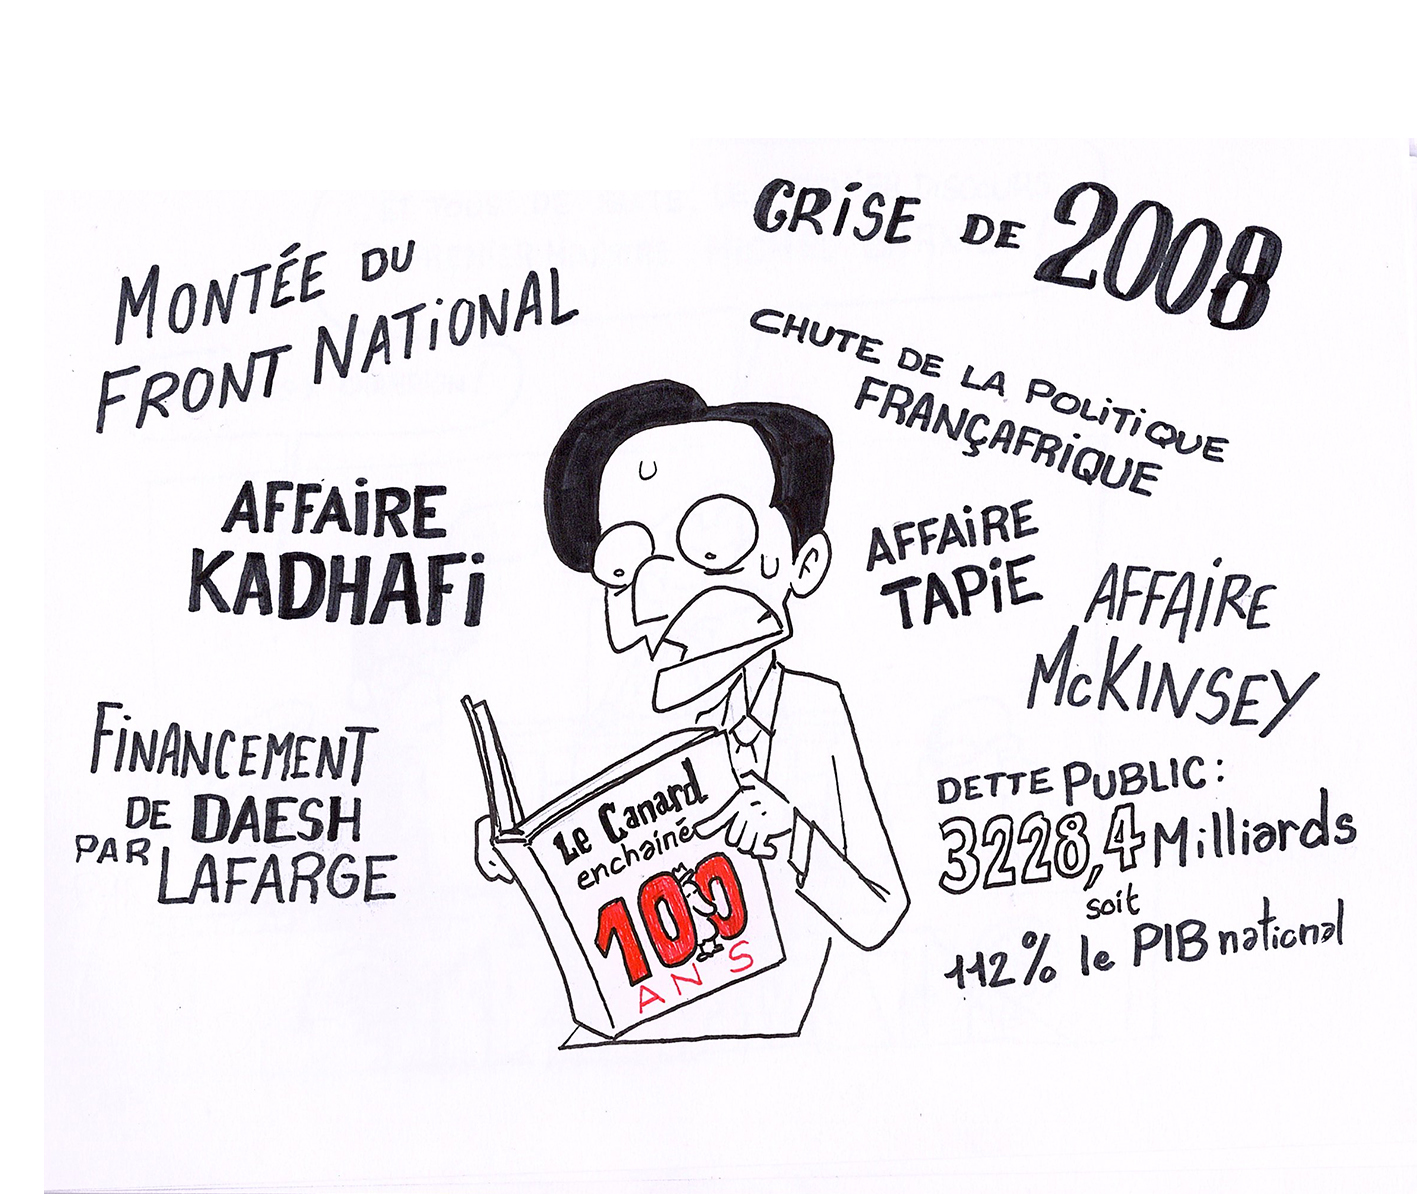 MONTÉE DU
FRONT NATiONAL
CRiSE DE 2008
CHUTE DE LA POLiTiQUE
FRANÇAFRiQUE
AFFAiRE
KADHAFi
AFFAiRE
TAPiE
AFFAiRE
McKINSEY
FiNANCEMENT
DE DAESH
PAR LAFARGE
DETTE PUBLIC :
3228,4 Milliards
soit
112% le PIB national
Le Canard
enchainé
100
ANS